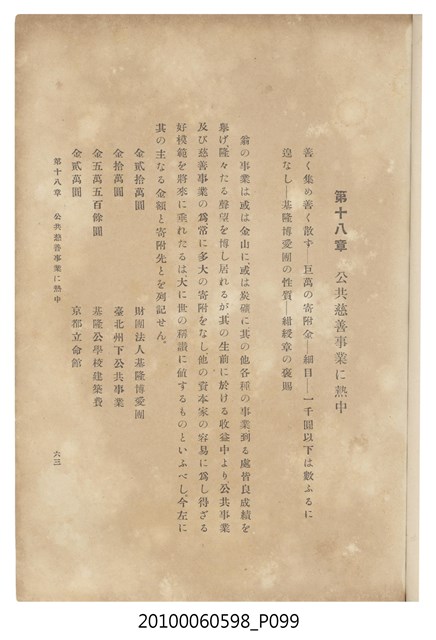 第十八章　公共慈善事業に熱中
善く集め善く散ず――巨萬の寄附金――細目――一千圓以下は數ふるに
遑なし――基隆博愛團の性質――紺綬章の褒賜
翁の事業は或は金山に、或は炭礦に其の他各種の事業到る處皆良成績を
擧げ、隆々たる聲望を博し居れるが其の生前に於ける收益中より、公共事業
及び慈善事業の爲常に多大の寄附をなし他の資本家の容易に爲し得ざる
好模範を將來に垂れたるは大に世の稱讃に値するものといふべし、今左に
其の主なる金額と寄附先とを列記せん。
金貳拾萬圓　財團法人基隆博愛團
金拾萬圓　臺北州下公共事業
金五萬五百餘圓　基隆公學校建築費
金貳萬圓　京都立命館
第十八章　公共慈善事業に熱中　六三
20100060598_P099